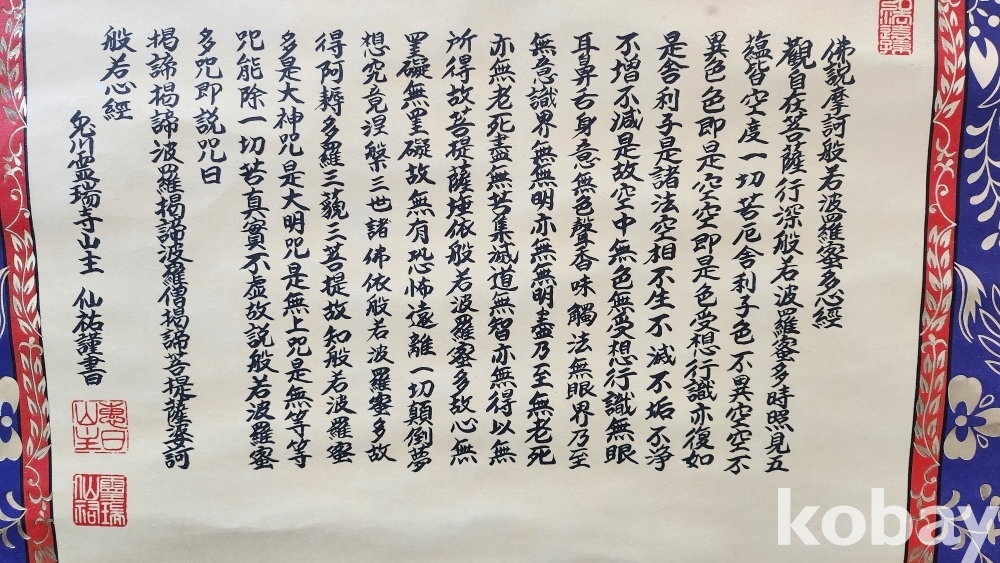 佛説摩訶般若波羅蜜多心經
觀自在菩薩行深般若波羅蜜多時照見五
蘊皆空度一切苦厄舎利子色不異空空不
異色色即是空空即是色受想行識亦復如
是舎利子是諸法空相不生不滅不垢不浄
不増不減是故空中無色無受想行識無眼
耳鼻舌身意無色聲香味觸法無眼界乃至
無意識界無無明亦無無明盡乃至無老死
亦無老死盡無苦集滅道無智亦無得以無
所得故菩提薩埵依般若波羅蜜多故心無
罣礙無罣礙故無有恐怖遠離一切顛倒夢
想究竟涅槃三世諸佛依般若波羅蜜多故
得阿耨多羅三藐三菩提故知般若波羅蜜
多是大神咒是大明咒是無上咒是無等等
咒能除一切苦真實不虚故説般若波羅蜜
多咒即説咒曰
掲諦掲諦波羅掲諦波羅僧掲諦菩提薩婆訶
般若心經
鬼川靈瑞寺山主 仙祐謹書
惠日山主
靈瑞仙祐
kobay